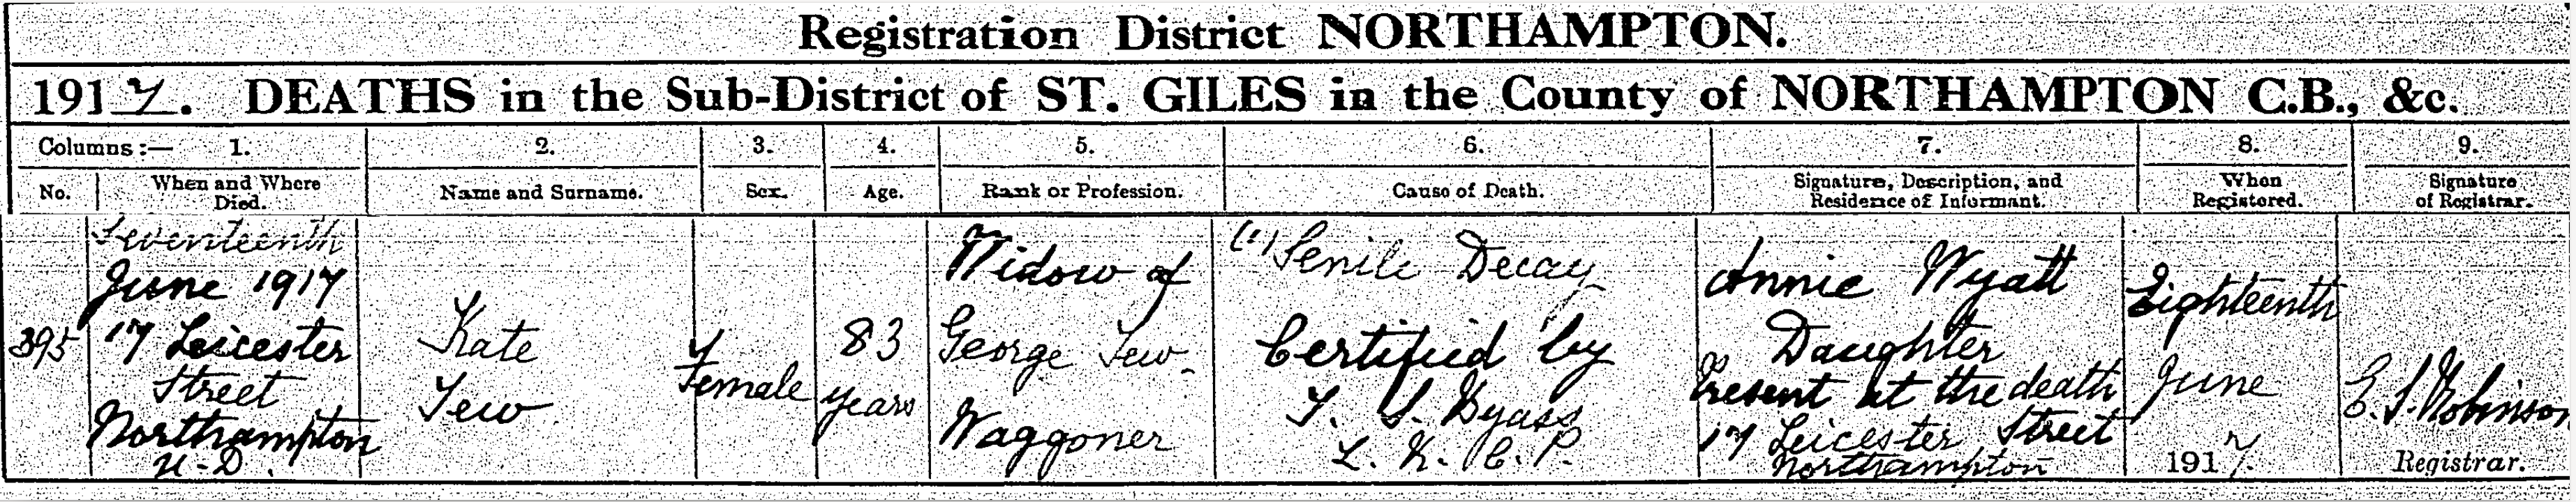 Registration District NORTHAMPTON.
1917. DEATHS in the Sub-District of ST. GILES in the County of NORTHAMPTON C.B., &c.
Columns :— 1. 2. 3. 4. 5. 6. 7. 8. 9.
No. When and Where Died. Name and Surname. Sex. Age. Rank or Profession. Cause of Death. Signature, Description, and Residence of Informant. When Registered. Signature of Registrar.
395
Seventeenth
June 1917
17 Leicester
Street
Northampton
U-D.
Kate
Tew
Female
83
years
Widow of
George Tew
Waggoner
(1) Senile Decay
Certified by
Dyass
L. R. C. P.
Annie Wyatt
Daughter
Present at the death
17 Leicester Street
Northampton
Eighteenth
June
1917.
E. S. Robinson
Registrar.